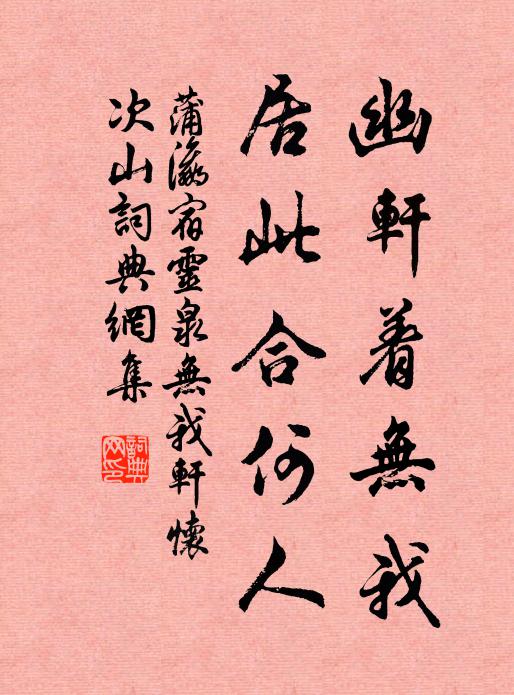 幽軒着無我
居此合何人
蒲瀛宿靈泉無我軒懷
次山詞典網集
詞典
网印